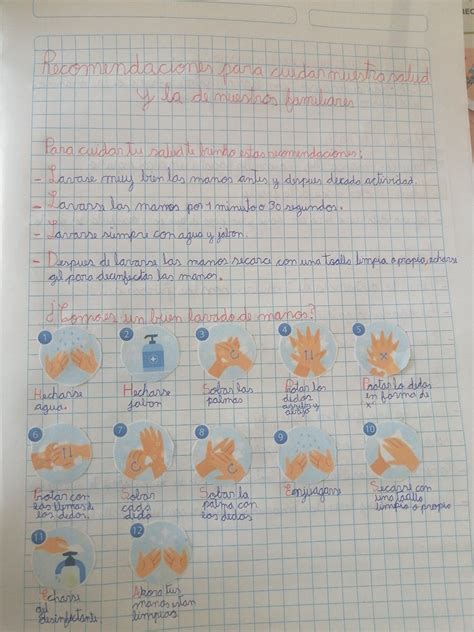 Recomendaciones para cuidar nuestra salud
y la de nuestros familiares
Para cuidar tu salud te brindo estas recomendaciones:
- Lavarse muy bien las manos antes y despues de cada actividad.
- Lavarse las manos por 1 minuto o 30 segundos.
- Lavarse siempre con agua y jabon.
- Despues de lavarse las manos secarce con una toalla limpia o propia, echarse
gel para decinfectar las manos.
¿Como es un buen lavado de manos?
1 2 3 4 5
Hecharse
agua
Hecharse
jabon
Sobar las
palmas
Frotar los
dedos
arriba y
abajo
Frotar los dedos
en forma de
x
6 7 8 9 10
Frotar con
las llemas de
los dedos.
Sobar
cada
dedo
Sobar la
palma con
los dedos
Enjuagarse
Secarse con
una toalla
limpia o propia
11 12
Echarse
gel
desinfectante.
Ahora tus
manos estan
limpias